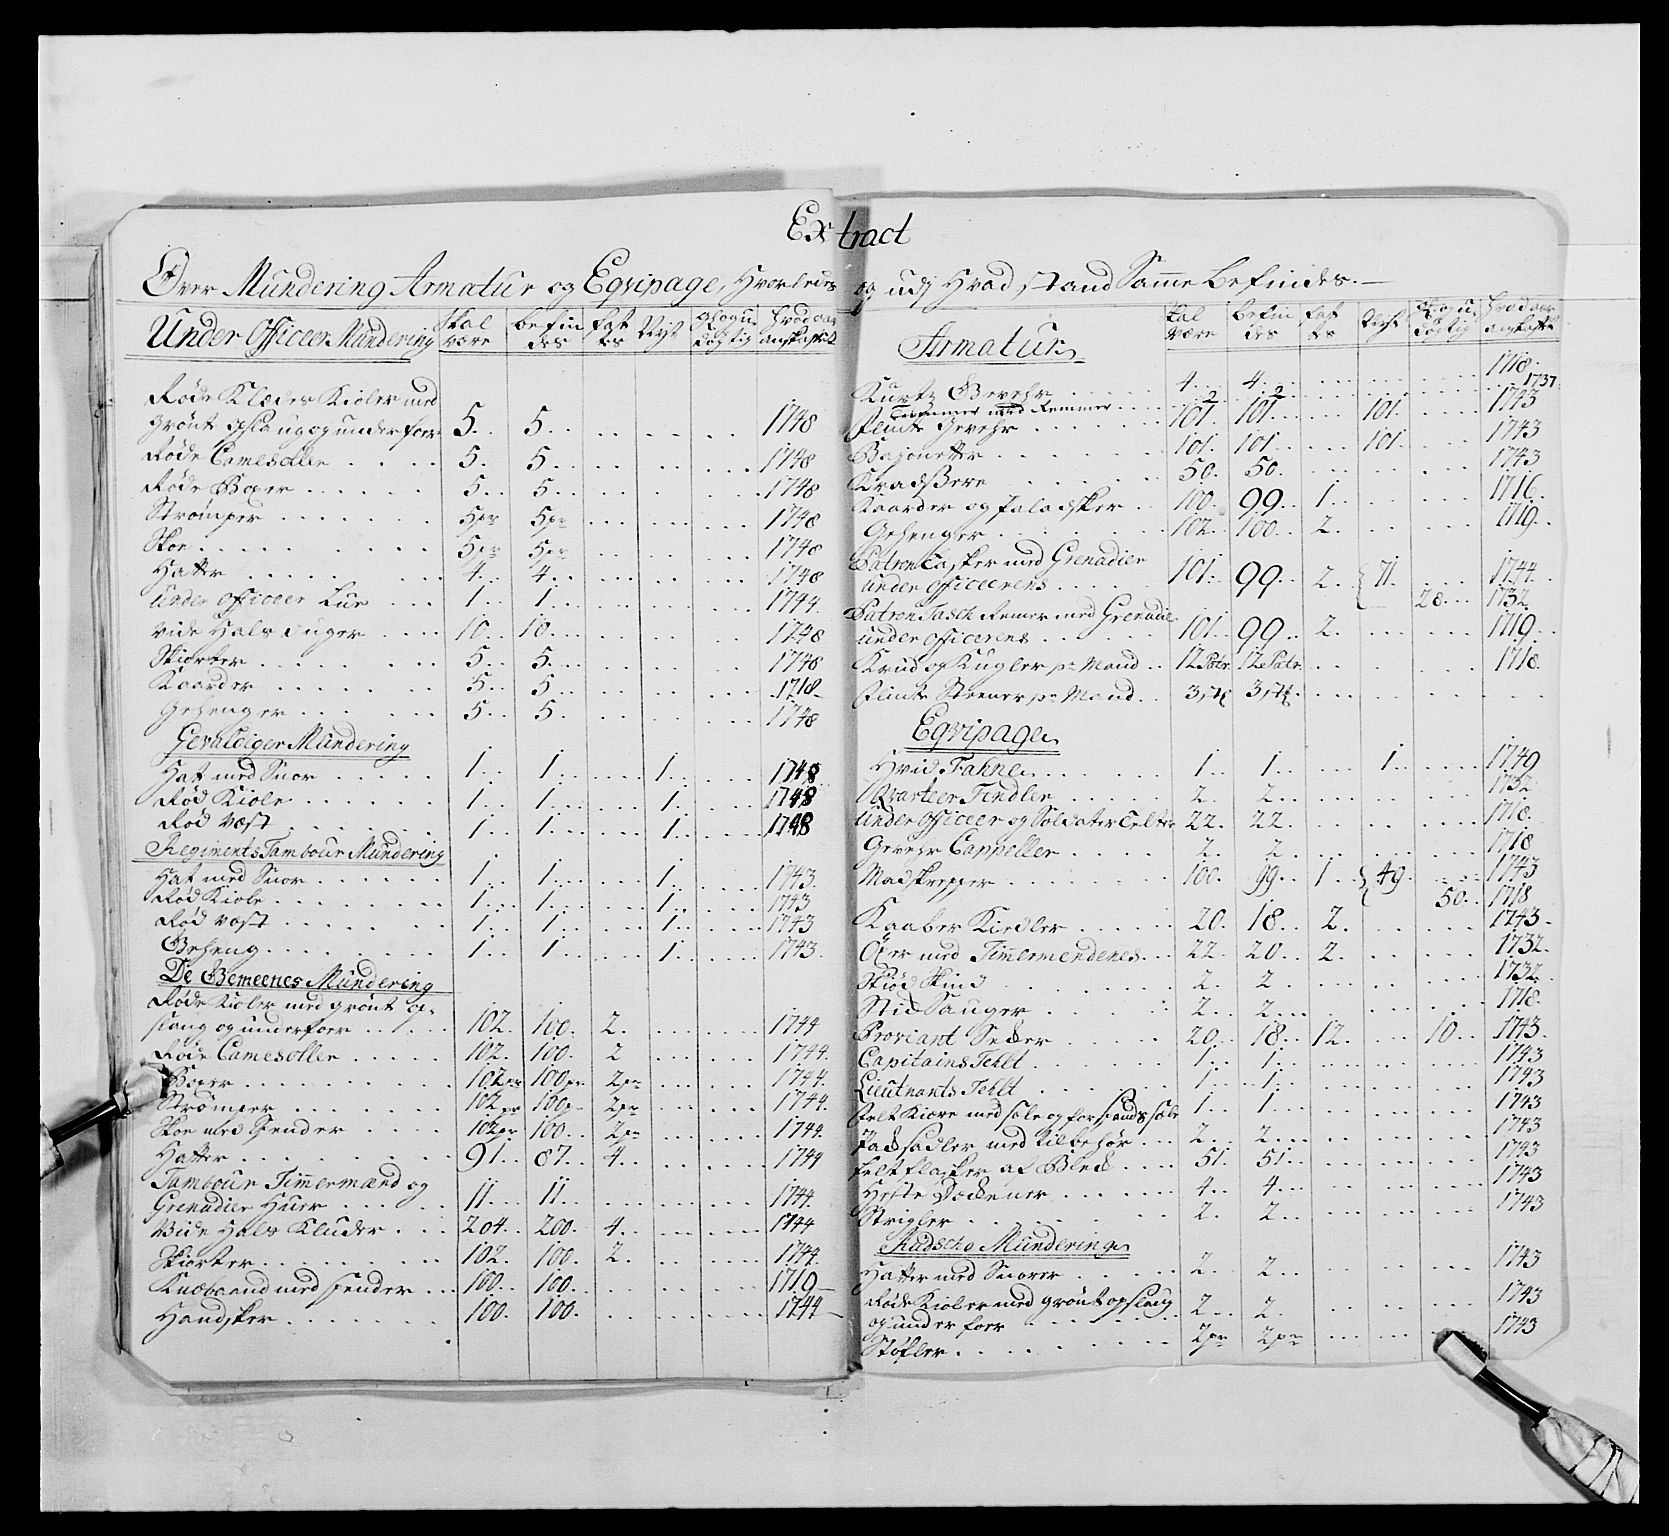 Extract
Over Mundering Armatur og Eqvipage, Hvorledes og udj Hvad stand Samme befindes.
Under Officer Mundering Skal være befindes fattes Nyt Hvad aar anskaffet
Røde Klædes Kioler med
grønt opslaug og underfoer 5. 5. 1748
Røde Camesoller 5. 5. 1748
Røde Boxer 5. 5. 1748
Strømper 5pr 5pr 1748
Skoe 5pr 5pr 1748
Hatte 4. 4. 1748
Under officeer Lue 1. 1. 1744
Vide Hals duger 10. 10. 1748
Skiorter 5. 5. 1748
Kaarder 5. 5. 1718
Gehenger 5. 5. 1748
Gevaldiger Mundering
Hat med Snor 1. 1. 1. 1748
Rød Kiole 1. 1. 1. 1748
Rød Vest 1. 1. 1. 1748
Regiments Tambour Mundering
Hat med Snor 1. 1. 1. 1743
Rød Kiole 1. 1. 1. 1743
Rød Vest 1. 1. 1. 1743
Geheng 1. 1. 1. 1743
De Gemeenes Mundering
Røde Kioler med grønt op-
slaug og underfoer 102. 100. 2. 1744
Røde Camesoller 102. 100. 2 1744
Boxer 102pr 100pr 2pr 1744
Strømper 102pr 100pr 2pr 1744
Skoe med Spender 102pr 100. 2pr 1744
Hatter 91. 87. 4. 1744
Tambour Timmermænd og
Grenadier Huer 11. 11. 1744
Vide Hals Kluder 204. 200. 4. 1744
Skiorter 102. 100. 2. 1744
Knæbaand med spender 100. 100. 1719
Handsker 100. 100. 1744
Armatur Skal være befindes fattes Nyt Hvad aar anskaffet
Kurtz Gevehr 4. 4. 1718
med Remmer 2 2 1737
Flint Gevehr 101. 101. 101. 1743
Bajonetter 101. 101. 101. 1743
Kradssere 50. 50. 1743
Kaarder og faladsker 100. 99. 1. 1716
Gehenger 102. 100. 2. 1719
Patron Tasker med Grenadier
under officerens 101. 99. 2. 71. 1744
28. 1732
Patron Tasch Remer med Grenadie
under officerens 101. 99. 2. 1719
Krud og Kugler pr Mand 12 Patr. 12 Patr. 1718
Flinte Steener pr Mand 3 stk 3 stk
Eqvipage
Hvid Fahne 1. 1. 1. 1749
Qvarteer Findler 2. 2. 1732
Under officeer og Soldater Telte 22. 22. 1718
Gevehr Cappeller 2. 2. 1718
Madskrepper 100. 99. 1. 49. 1743
50. 1718
Kaaber Kiedler 20. 18. 2. 1743
Øxer med Timmermendenes 22. 20. 2. 1732
Skiød Skind 2. 2 1732
Stid Sauger 2. 2. 1718
Proviant Seker 20. 18. 12. 10. 1743
Capitains Tellt 1. 1. 1743
Lieutnants Teltt 1. 1. 1743
felt Kiære med sæle og forspands sæle 1. 1. 1743
Pack sadler med tilbehør 2. 2. 1743
felt flasker af Blek 51. 51. 1743
Heste Dæckener 4. 4. 1743
Strigler 2. 2. 1743
Kudsche Mundering
Hatter med Snorer 2. 2. 1743
Røde Kioler med grønt opslaug
og under foer 2. 2. 1743
Støfler 2pr 2pr 1743